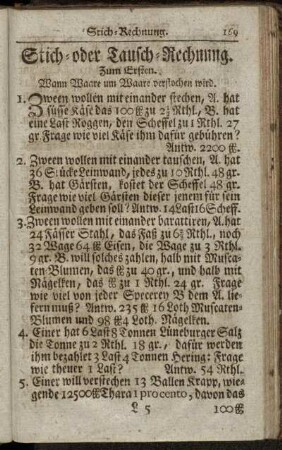 Stich-Rechnung. 169
Stich- oder Tausch-Rechnung.
Zum Ersten.
Wann Waare um Waare verstochen wird.
1. Zween wollen mit einander stechen, A. hat
süsse Käse das 100 ℔ zu 2½ Rthl., B. hat
eine Last Roggen, den Scheffel zu 1 Rthl. 27
gr. Frage wie viel Käse ihm dafür gebühren?
Antw. 2200 ℔.
2. Zween wollen mit einander tauschen, A. hat
36 Stücke Leinwand, jedes zu 10 Rthl. 48 gr.
B. hat Gärsten, kostet der Scheffel 48 gr.
Frage wie viel Gärsten dieser jenem für sein
Leinwand geben soll? Antw. 14 Last 16 Scheff.
3. Zween wollen mit einander barattiren, A. hat
24 Fässer Stahl, das Faß zu Rthl., noch
32 Wage 64 ℔ Eisen, die Wage zu 3 Rthl.
9 gr. B. will solches zahlen, halb mit Muscaten-
Blumen, das ℔ zu 40 gr., und halb mit
Nägelken, das ℔ zu 1 Rthl. 24 gr. Frage
wie viel von jeder Specerey B dem A. liefern
muß? Antw. 235 ℔ 16 Loth Muscaten-
Blumen und 98 ℔ 4 Loth. Nägelken.
4. Einer hat 6 Last 8 Tonnen Lüneburger Salz
die Tonne zu 2 Rthl. 18 gr., dafür werden
ihm bezahlet 3 Last 4 Tonnen Hering: Frage
wie theuer 1 Last? Antw. 54 Rthl.
5. Einer will verstechen 13 Ballen Krapp, wiegende
12500 ℔ Thara 1 pro cento, davon das
L 5 100 ℔